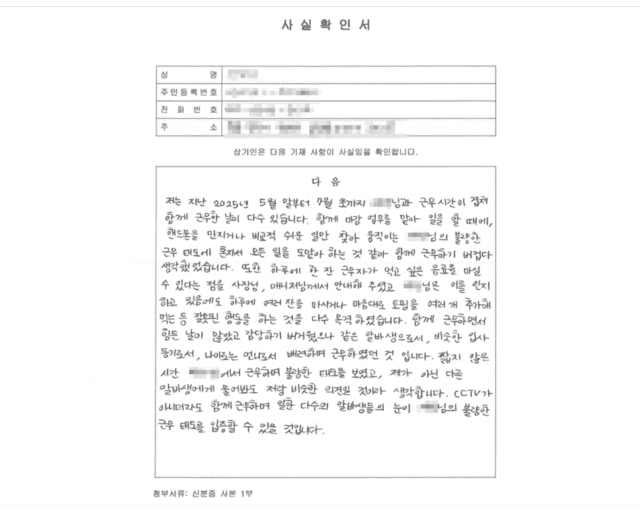 사실확인서
성 명
주민등록번호
전화번호
주 소
상기인은 다음 기재 사항이 사실임을 확인합니다.
다 음
저는 지난 2025년 5월 말부터 7월 초까지 님과 근무시간이 겹쳐
함께 근무한 날이 다수 있습니다. 함께 마감 업무를 맡아 일을 할 때에,
핸드폰을 만지거나 비교적 쉬운 일만 찾아 움직이는 님의 불량한
근무 태도에 혼자서 모든 일을 도맡아 하는 것 같아 함께 근무하기 버겁다
생각했었습니다. 또한 하루에 한 잔 근무자가 먹고 싶은 음료를 마실
수 있다는 점을 사장님, 매니저님께서 안내해 주셨고 님은 이를 인지
하고 있음에도 하루에 여러 잔을 마시거나 마음대로 토핑을 여러 개 추가해
먹는 등 잘못된 행동을 하는 것을 다수 목격하였습니다. 함께 근무하면서
힘든 날이 많았고 감당하기 버거웠으나 같은 알바생으로서, 비슷한 입사
동기로서, 나이로는 언니로서 배려하며 근무하였던 것 입니다. 짧지 않은
시간 에서 근무하며 불량한 태도를 보였고, 제가 아닌 다른
알바생에게 물어봐도 저랑 비슷한 의견일 것이라 생각합니다. CCTV가
아니더라도 함께 근무하며 일한 다수의 알바생들의 눈이 님의 불량한
근무 태도를 입증할 수 있을 것입니다.
첨부서류: 신분증 사본 1부